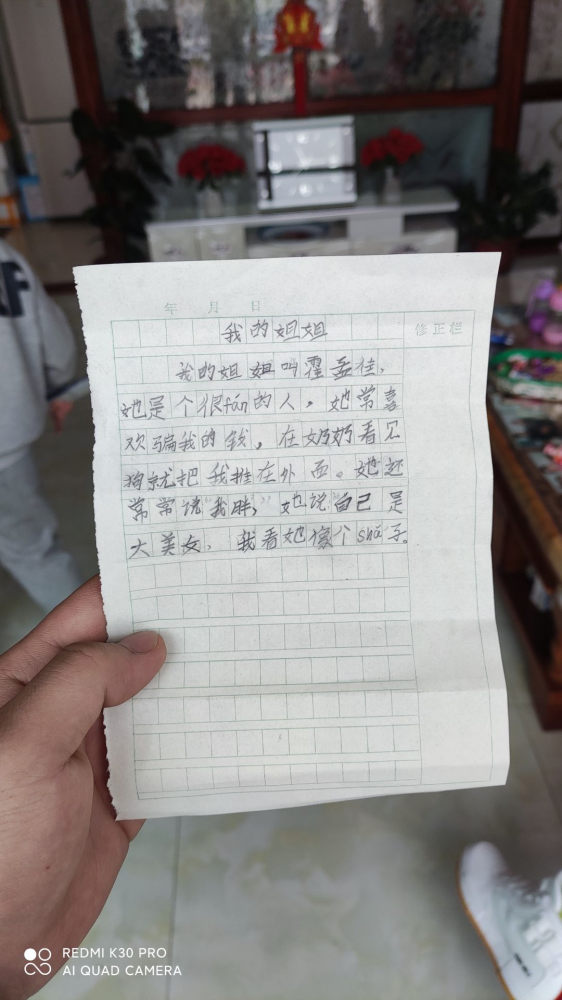 年 月 日
我的姐姐
修正栏
我的姐姐叫霍孟佳，
她是个很fán的人，她常喜
欢骗我的钱，在奶奶看见
狗就把我推在外面。她还
常常说"我胖，"她说自己是
大美女，我看她像个shǎ子。
REDMI K30 PRO
AI QUAD CAMERA